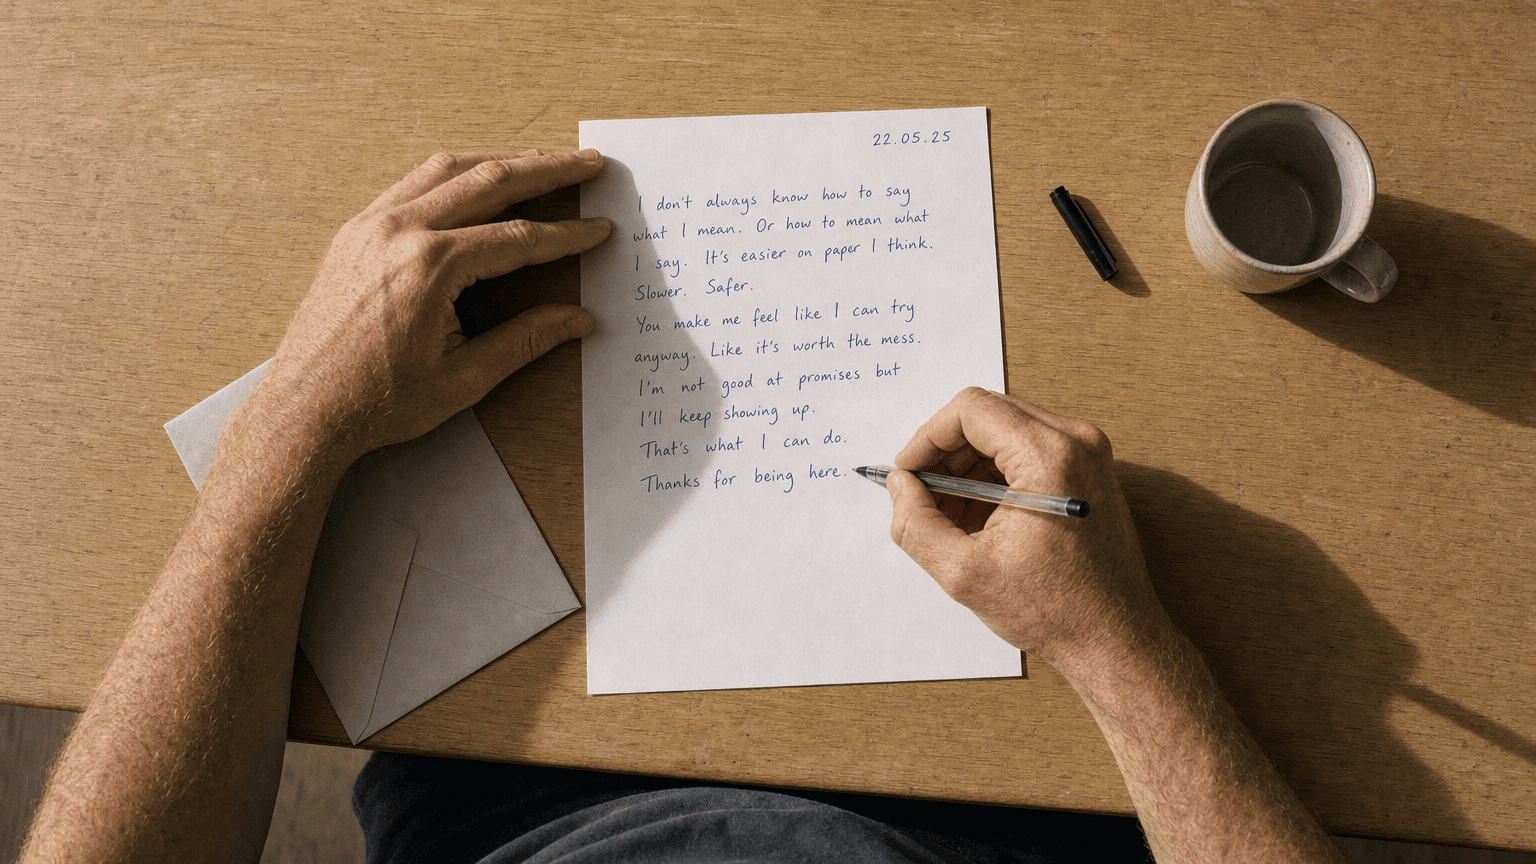 22.05.25
I don't always know how to say
what I mean. Or how to mean what
I say. It's easier on paper I think.
Slower. Safer.
You make me feel like I can try
anyway. Like it's worth the mess.
I'm not good at promises but
I'll keep showing up.
That's what I can do.
Thanks for being here.